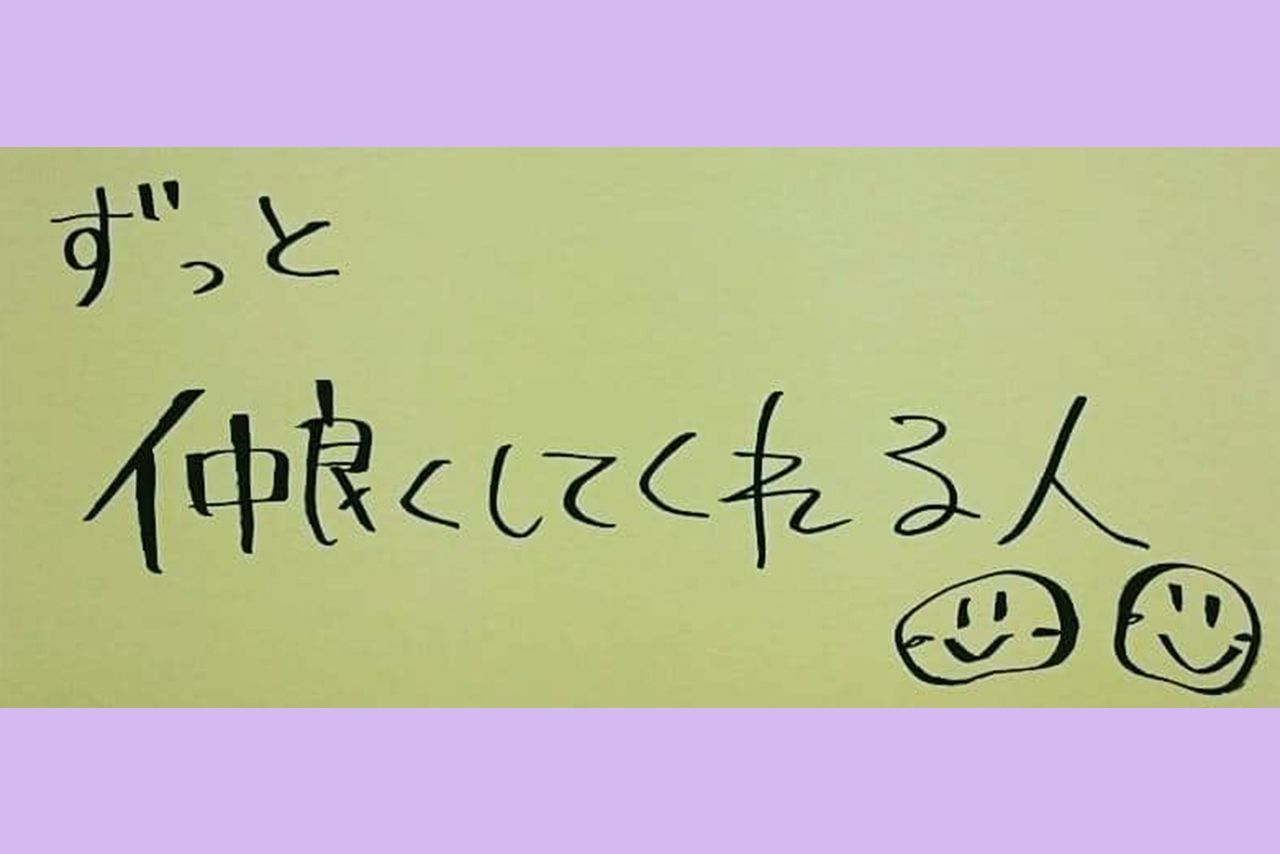 ずっと
仲良くしてくれる人